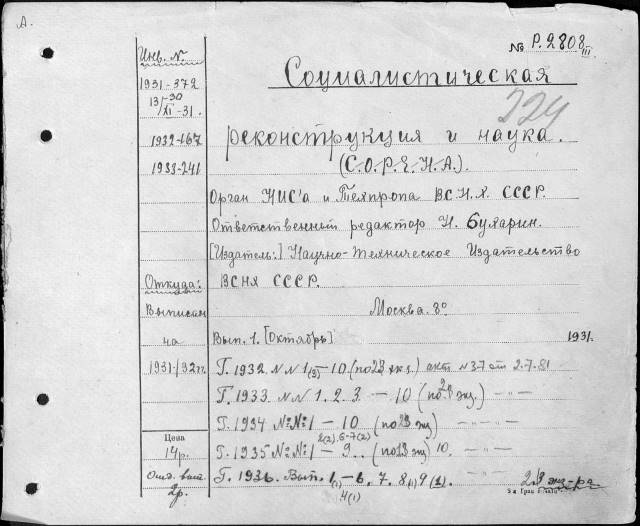 А.
Инв. N
1931-372
13/XI-31.
1932-167
1933-241
Откуда:
Выписан
на
1931/32 гг.
Цена
14р.
2р.
№ Р.2808 III
Социалистическая
реконструкция и наука.
(С.О.Р.Е.Н.А.).
Орган НИС'а и Техпропа ВСНХ СССР.
Ответственный редактор Н. Бухарин.
[Издатель:] Научно-Техническое Издательство
ВСНХ СССР.
Москва. 8°
Вып. 1. [Октябрь] 1931.
Г. 1932 N N 1(3) - 10. акт N37 от 2.7.81
Г. 1933. N N 1. 2. 3 - 10
Г. 1934 №№ 1 - 10
Г. 1935 №№ 1 - 9.. 10.
2(2). 6-7(2)
Г. 1936. Вып. 1(1) - 6, 7. 8(1) 9
4(1)